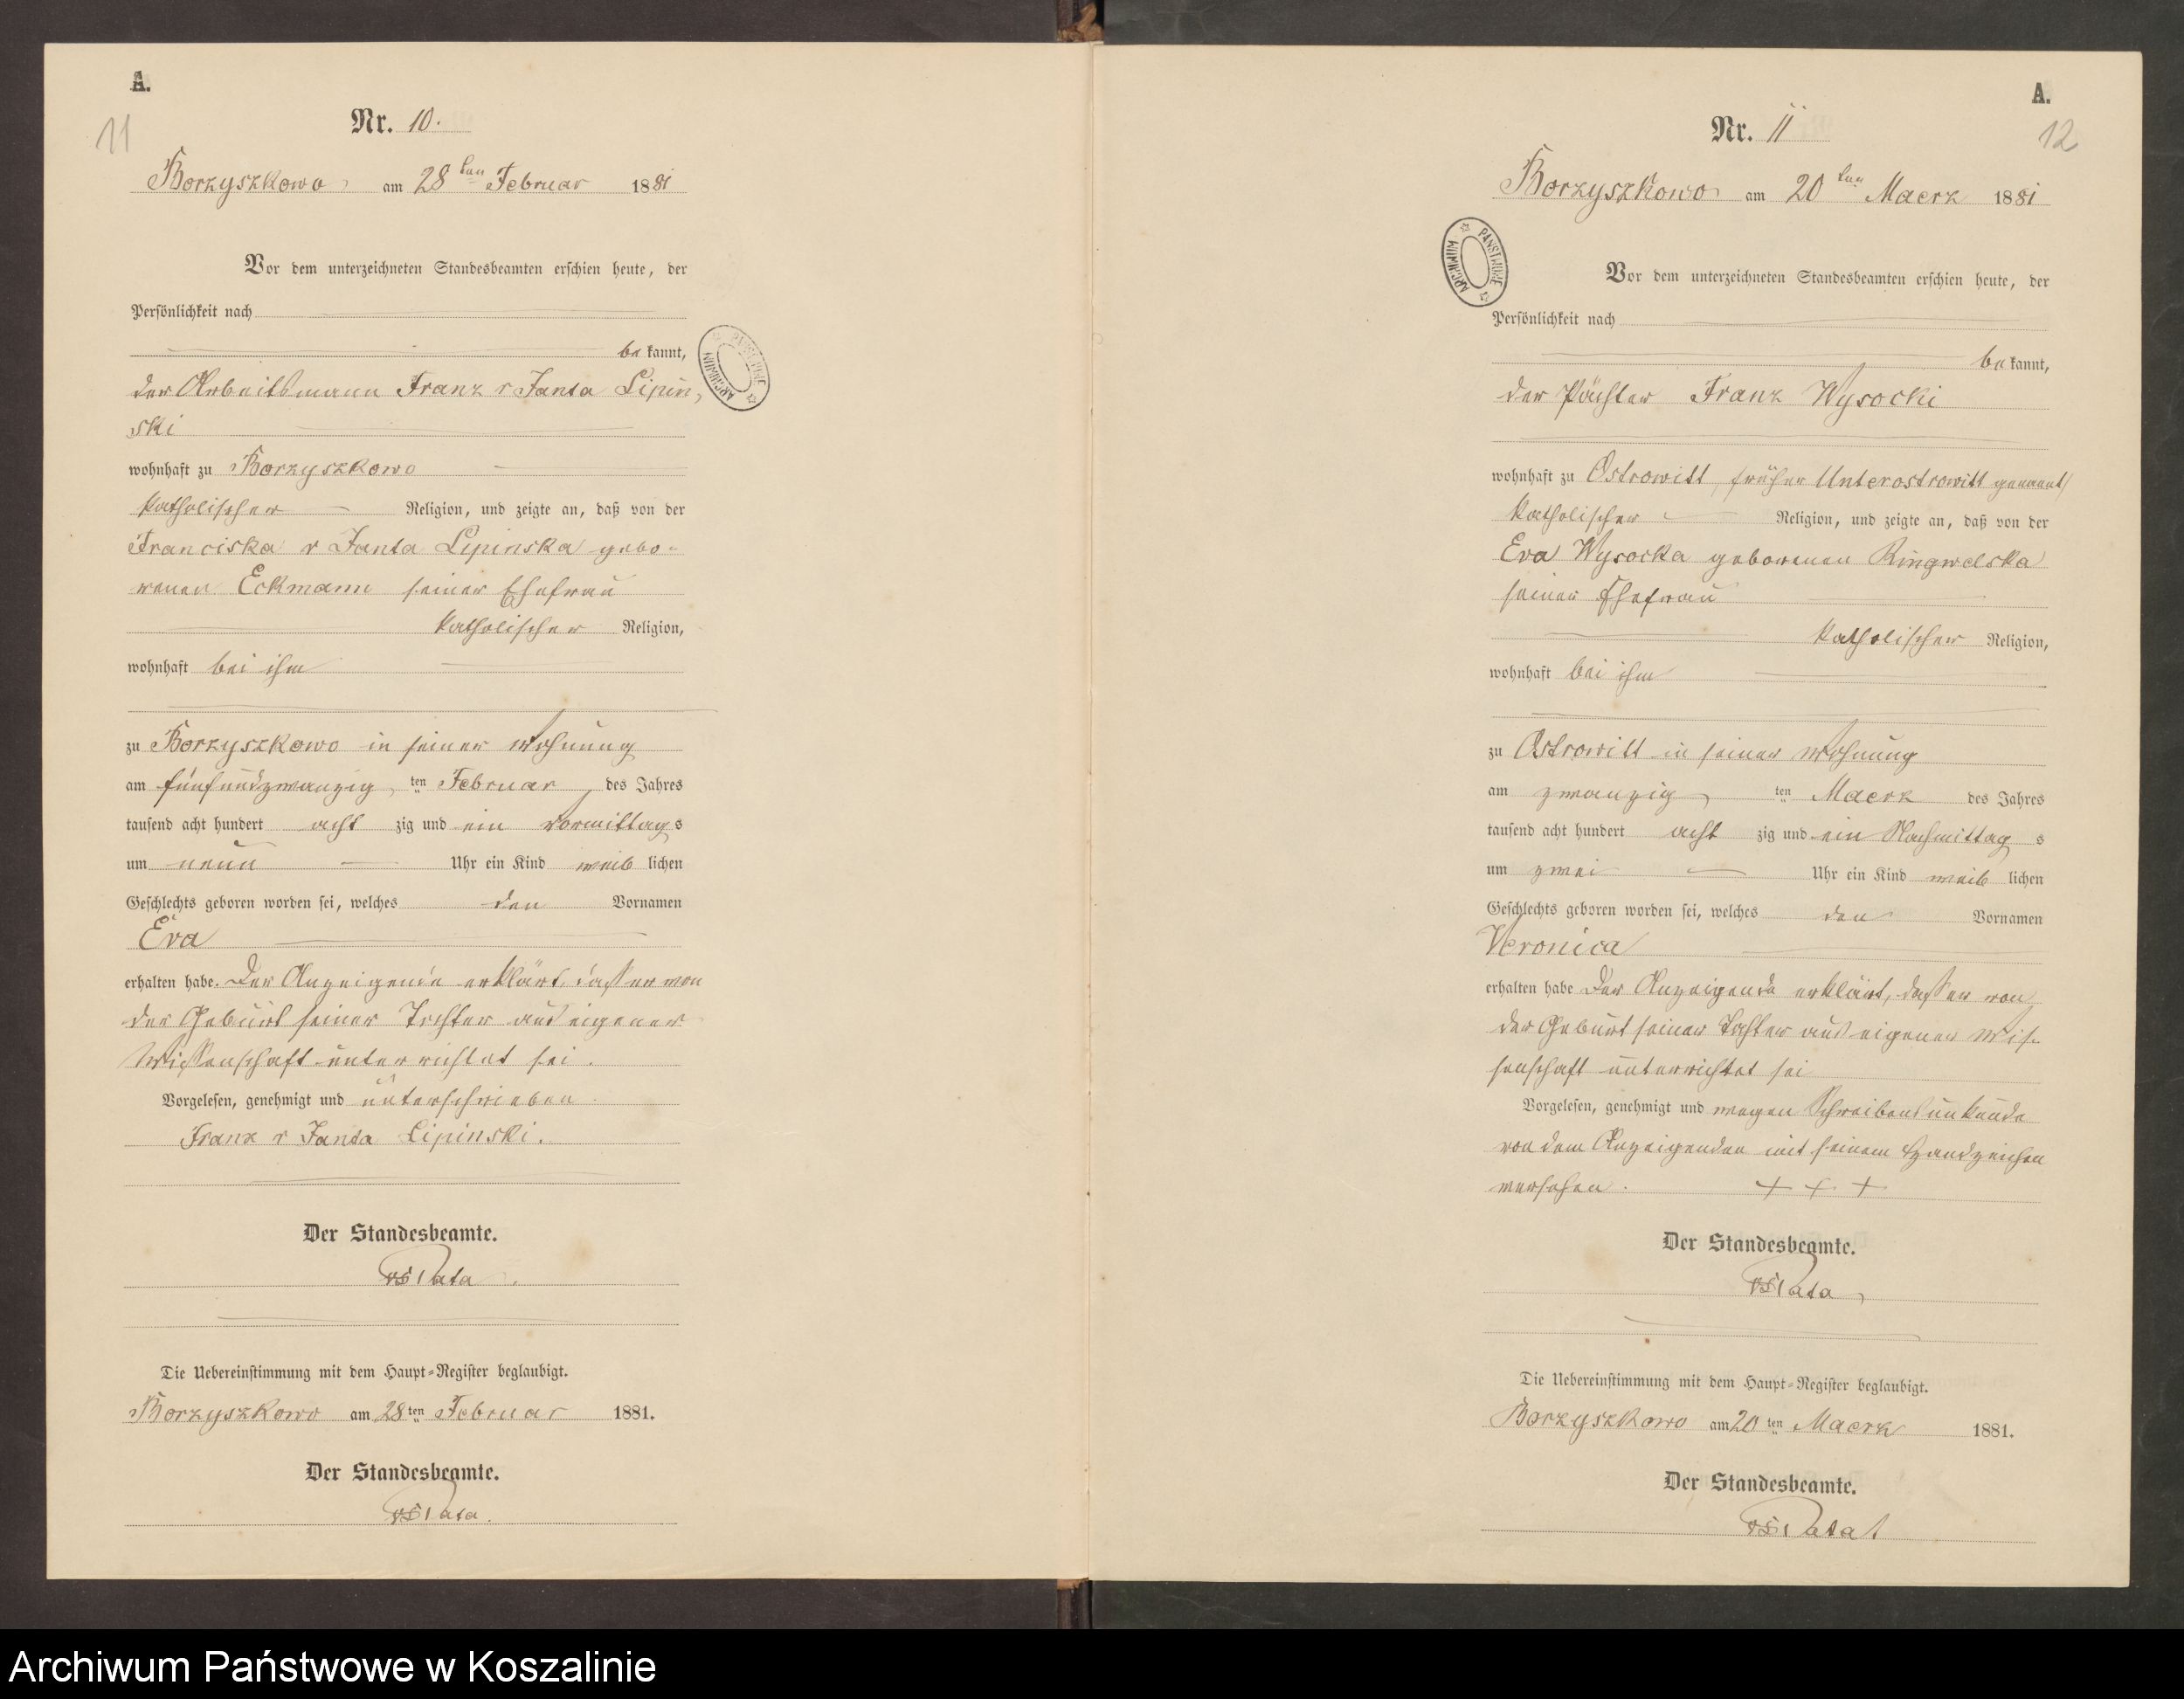 A.
11
Nr. 10.
Borzyszkowo am 28ten Februar 1881
Vor dem unterzeichneten Standesbeamten erschien heute, der
Persönlichkeit nach
be kannt,
der Arbeitsmann Franz v Janta Lipin,
ski
wohnhaft zu Borzyszkowo
katholischer Religion, und zeigte an, daß von der
Franciska v Janta Lipinska gebo-
renen Eckmann seiner Ehefrau
katholischer Religion,
wohnhaft bei ihm
zu Borzyszkowo in seiner Wohnung
am fünfundzwanzig ten Februar des Jahres
tausend acht hundert acht zig und ein Vormittags
um neun Uhr ein Kind weib lichen
Geschlechts geboren worden sei, welches den Vornamen
Eva
erhalten habe. Der Anzeigende erklärt, dass er von
der Geburt seiner Tochter aus eigener
Wissenschaft unterrichtet sei.
Vorgelesen, genehmigt und unterschrieben
Franz v Janta Lipinski.
Der Standesbeamte.
Die Uebereinstimmung mit dem Haupt-Register beglaubigt.
Borzyszkowo am 28ten Februar 1881.
Der Standesbeamte.
A.
12
Nr. 11
Borzyszkowo am 20ten Maerz 1881
ARCHIWUM PAŃSTWOWE
Vor dem unterzeichneten Standesbeamten erschien heute, der
Persönlichkeit nach
be kannt,
der Pächter Franz Wysocki
wohnhaft zu Ostrowitt, früher Unterostrowitt genannt
katholischer Religion, und zeigte an, daß von der
Eva Wysocka geborenen Ringwelska
seiner Ehefrau
katholischer Religion,
wohnhaft bei ihm
zu Ostrowitt in seiner Wohnung
am zwanzig ten Maerz des Jahres
tausend acht hundert acht zig und ein Nachmittag s
um zwei Uhr ein Kind weib lichen
Geschlechts geboren worden sei, welches den Vornamen
Veronica
erhalten habe Der Anzeigende erklärt, dass er von
der Geburt seiner Tochter aus eigener Wis-
senschaft unterrichtet sei
Vorgelesen, genehmigt und wegen Schreibensunkunde
von dem Anzeigenden mit seinem Handzeichen
versehen. + + +
Der Standesbeamte.
Die Uebereinstimmung mit dem Haupt-Register beglaubigt.
Borzyszkowo am 20ten Maerz 1881.
Der Standesbeamte.
Archiwum Państwowe w Koszalinie